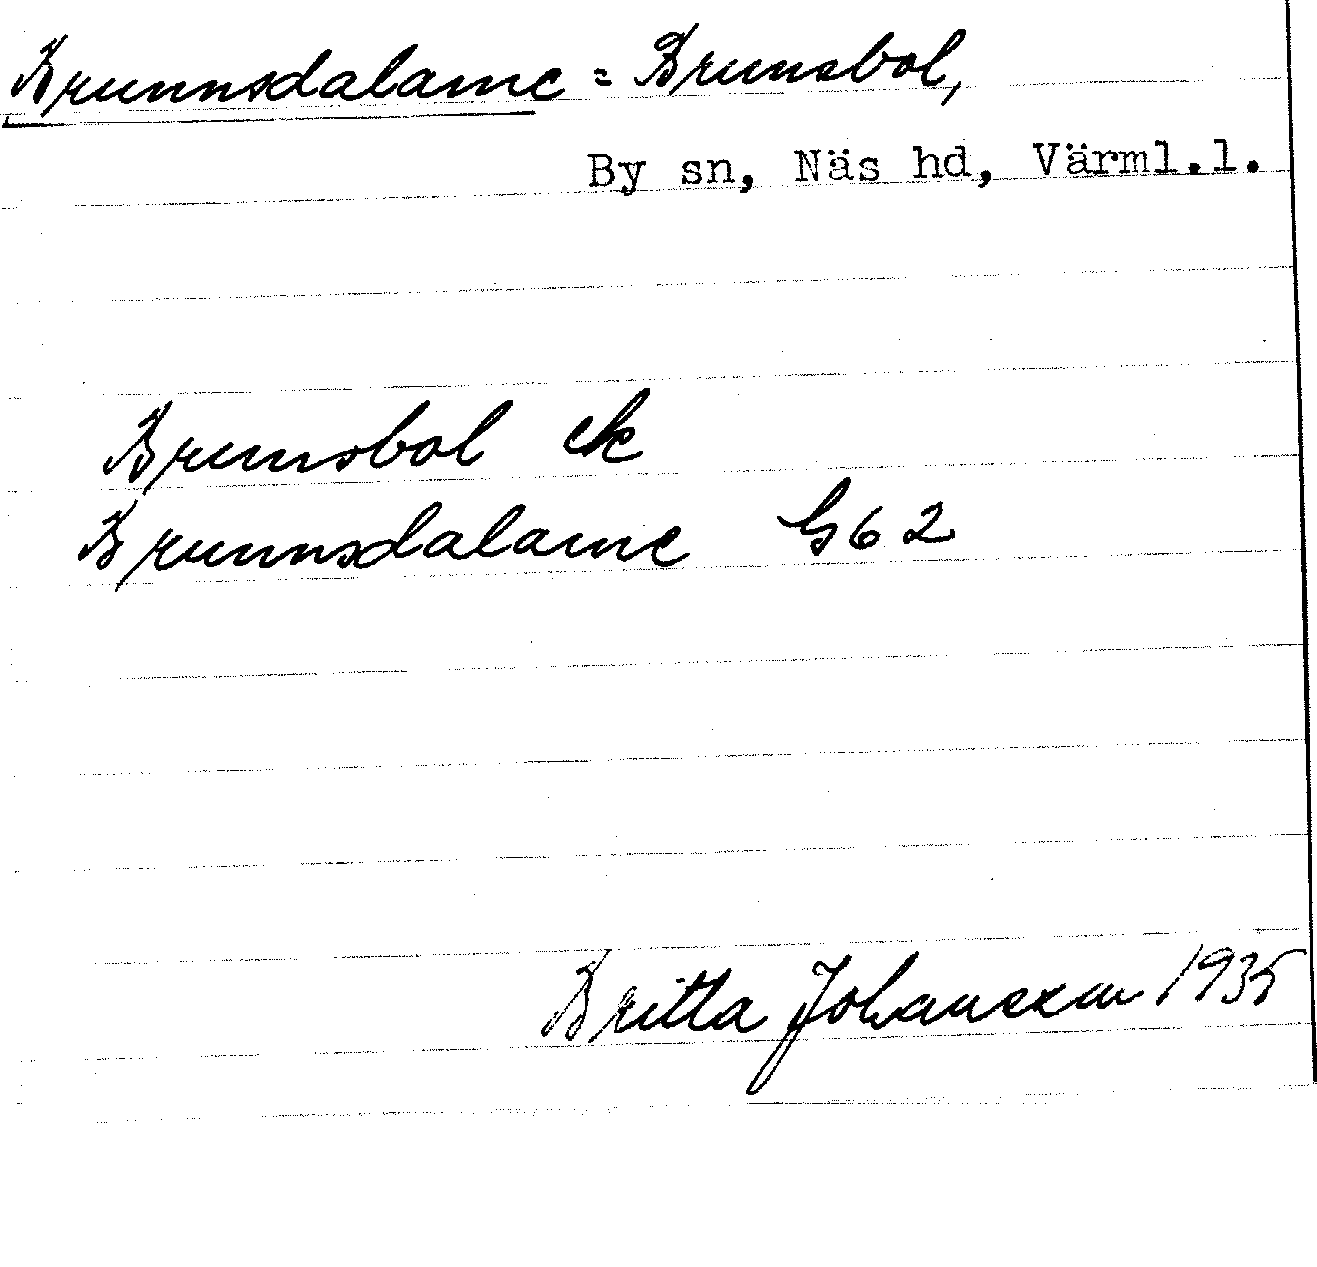 Brunnsdalarne = Brunsbol,
By sn, Näs hd, Värml.l.
Brunsbol ek
Brunnsdalarne G62
Britta Johansson 1935